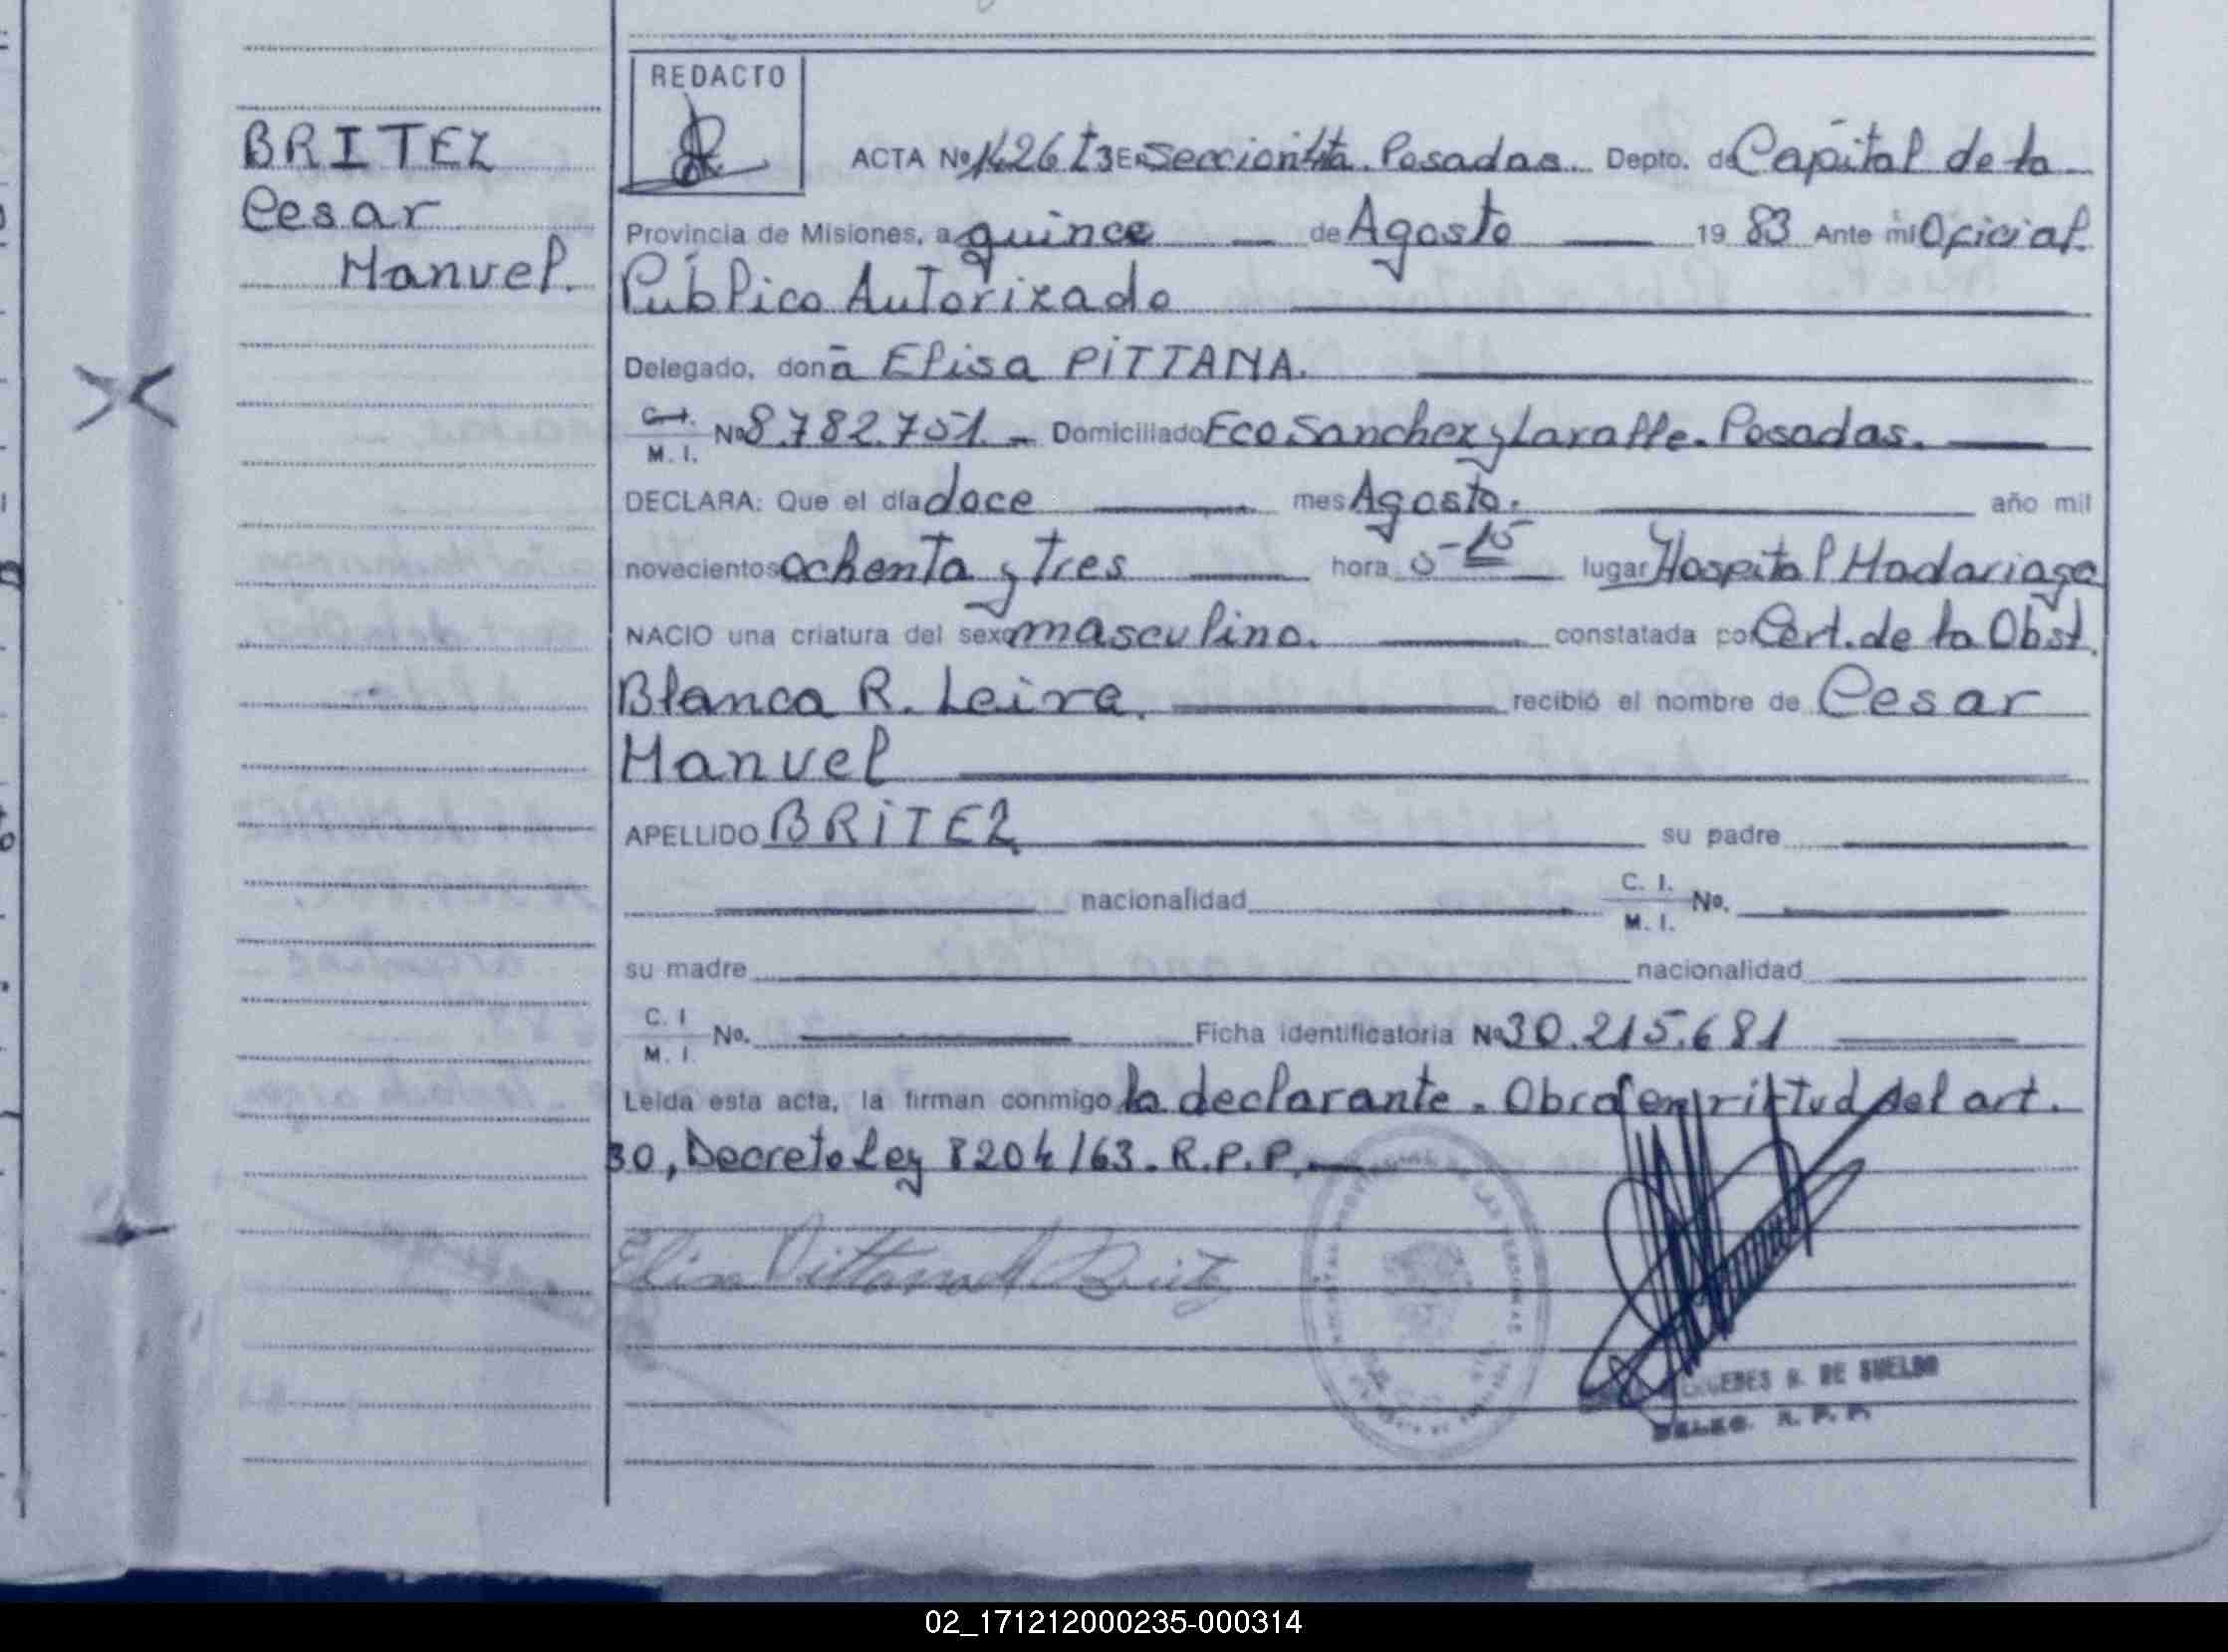 REDACTO
BRITEZ
Cesar
Manuel.
ACTA Nº 1426 T3 En Sección 4ta. Posadas. Depto. de Capital de la
Provincia de Misiones, a quince de Agosto 19 83 Ante mi Oficial
Público Autorizado
Delegado, don a Elisa PITTANA.
C. I. M. I. Nº 8.782.751. Domiciliado Fco Sanchez y Lavalle. Posadas.
DECLARA: Que el día doce mes Agosto. año mil
novecientos ochenta y tres hora 5-15 lugar Hospital Madariaga
NACIO una criatura del sexo masculino. constatada por Cert. de la Obst.
Blanca R. Leiva. recibió el nombre de Cesar
Manuel
APELLIDO BRITEZ su padre
nacionalidad C. I. M. I. No.
su madre nacionalidad
C. I M. I. No. Ficha identificatoria Nº 30.215.681
Leída esta acta, la firman conmigo la declarante. Obro en virtud del art.
30, Decreto Ley 8204/63. R.P.P.
Elisa Pittana
DE SUELDO
DELEG. R. P. P.
02_171212000235-000314